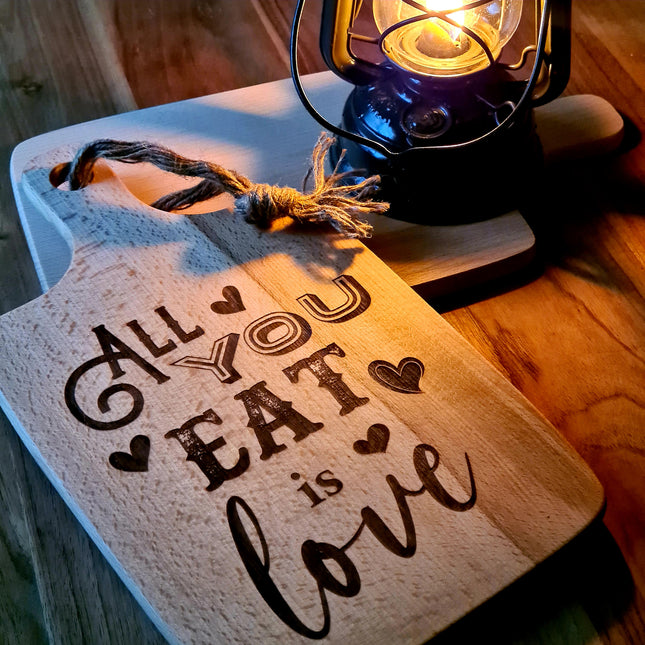 ALL YOU
EAT
is
love